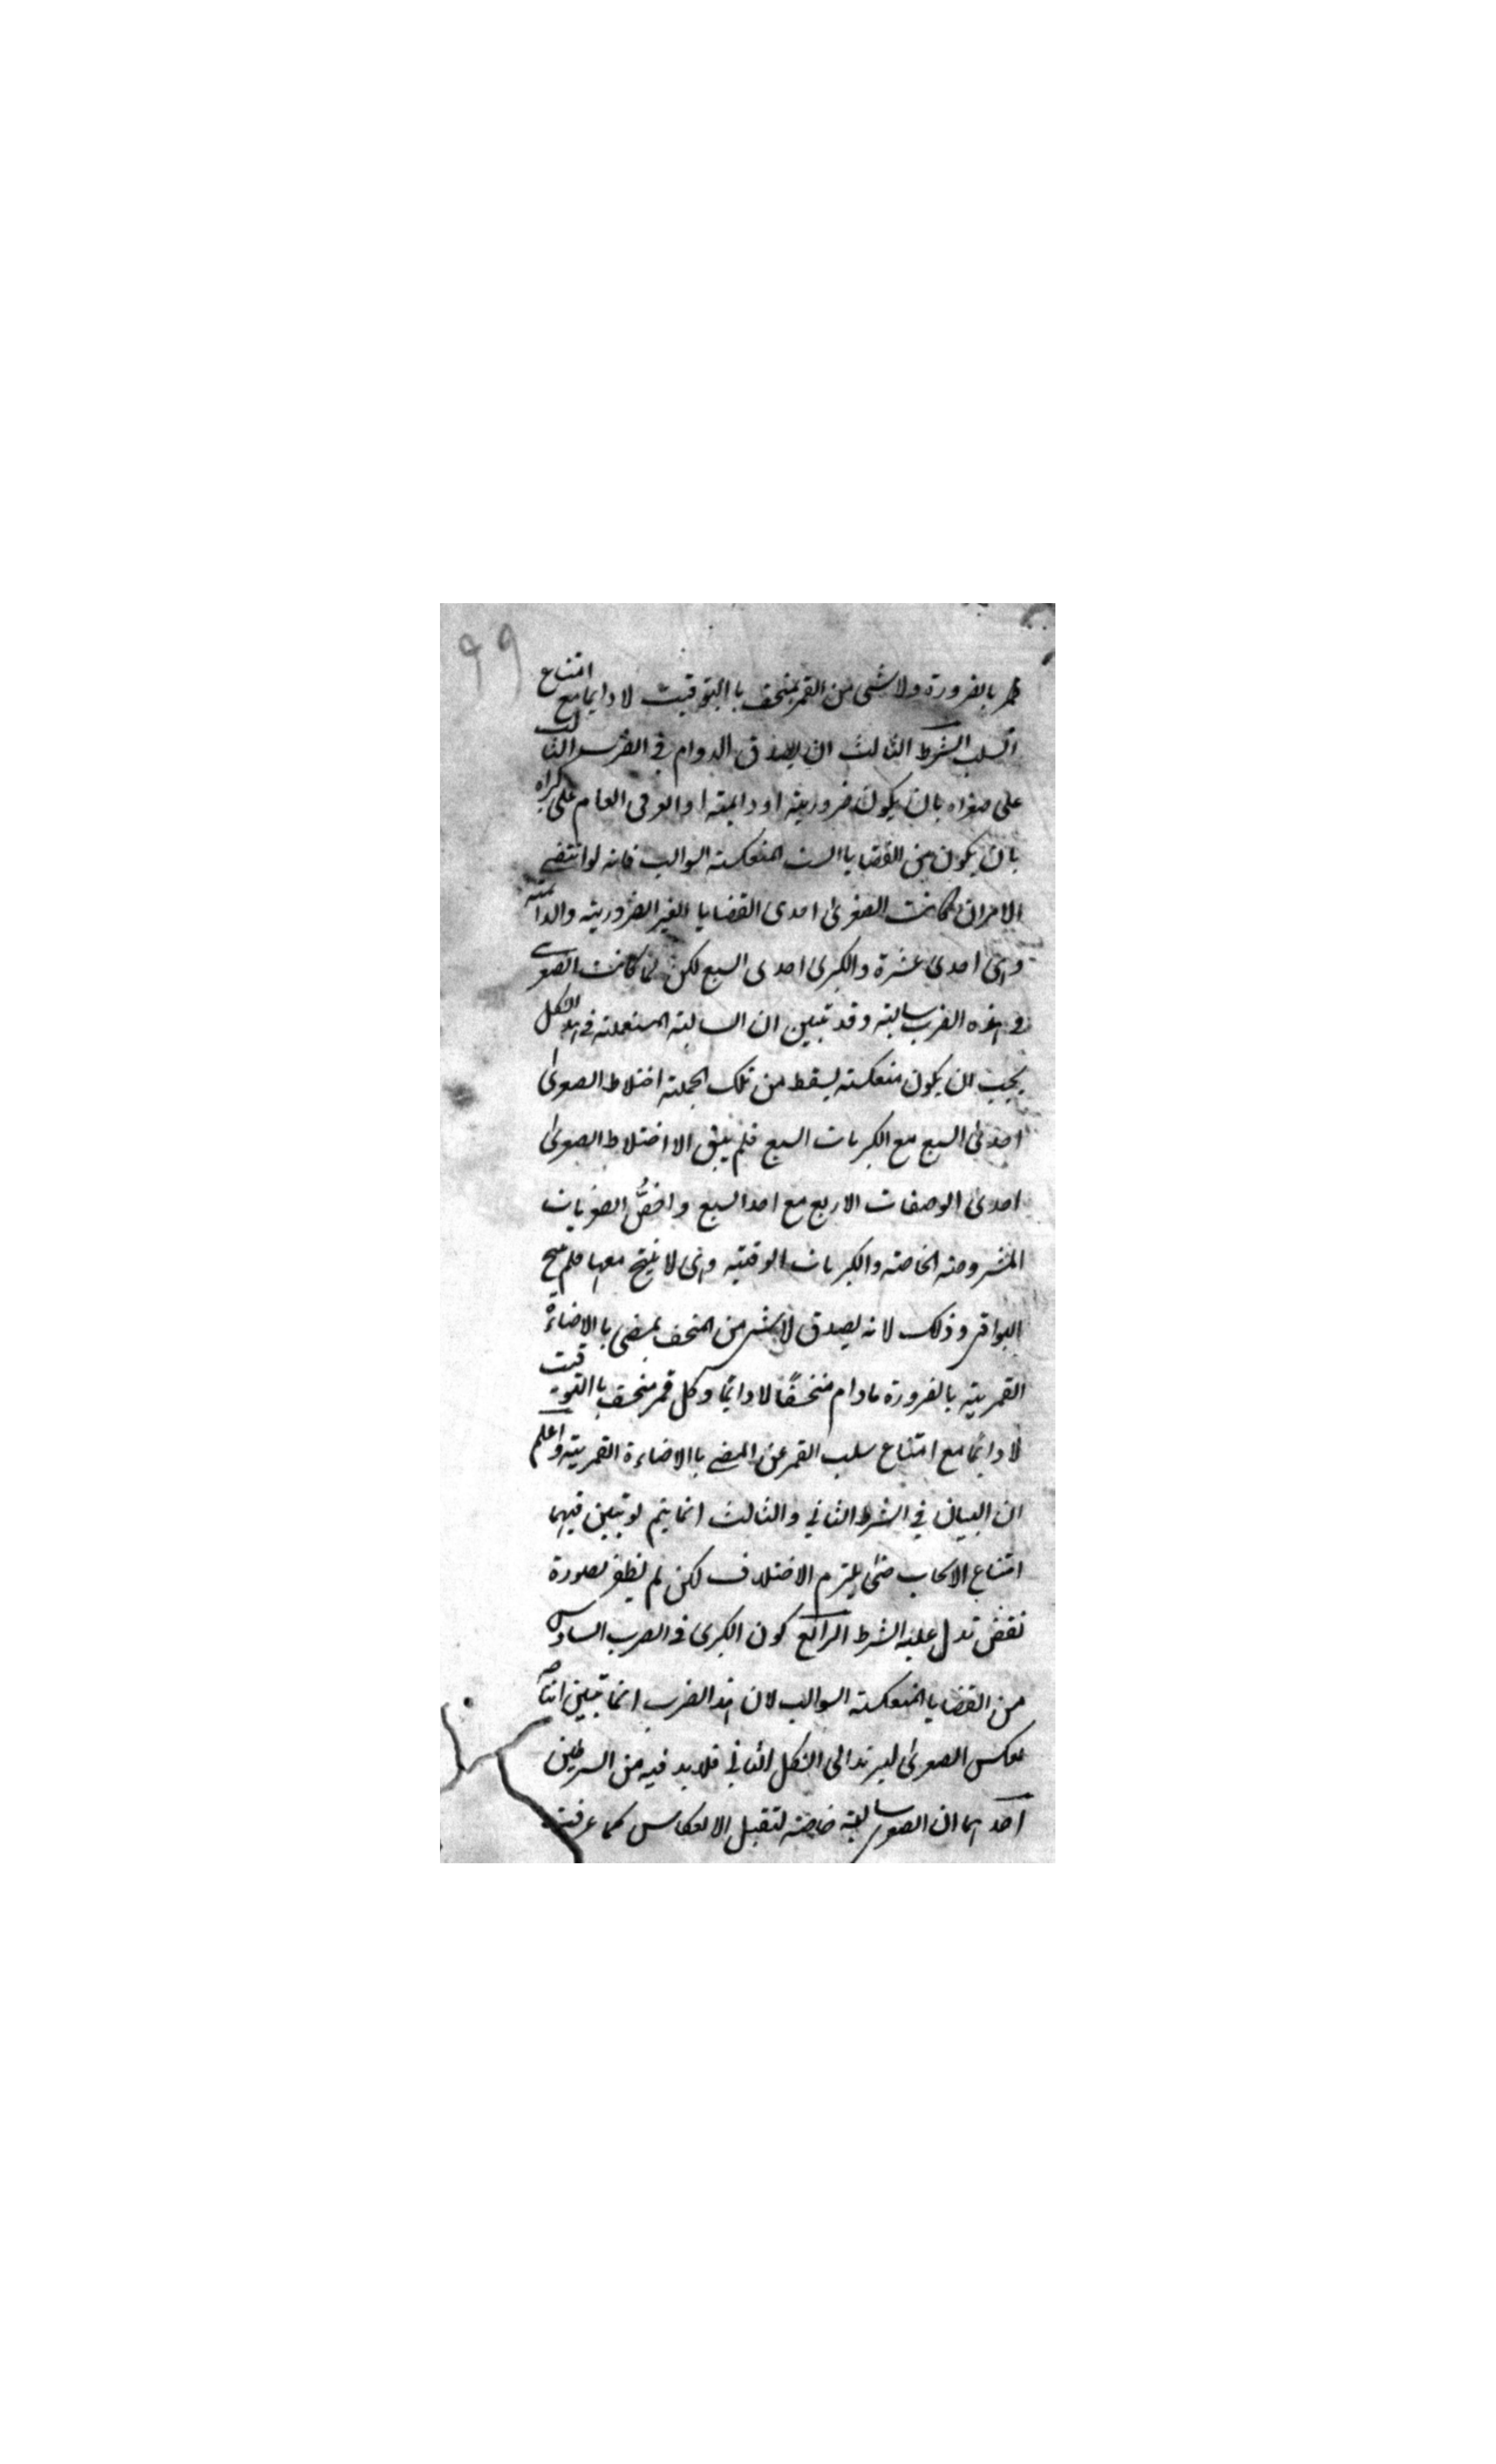 ٩٩
قمر بالضرورة ولا شئ من القمر بمنخسف باالتوقيت لا دايما مع امتناع
السلب الشرط الثالث ان يصدق الدوام في الضرب الثالث
على صغراه بان يكون ضرورية او دايمة او العرفى العام على كبراه
بان يكون من القضايا الست المنعكسة السوالب فانه لو انتفى
الامران لكانت الصغرى احدى القضايا الغير الضرورية والدائمة
وهى احدى عشرة والكبرى احدى السبع لكن لما كانت الصغرى
فى هذه الضرب سالبة وقد تبين ان السالبة المستعملة فى هذا الشكل
يجب ان يكون منعكسة يسقط من تلك الجملة اختلاط الصغرى
احدى السبع مع الكبريات السبع فلم يبق الا اختلاط الصغرى
احدى الوصفات الاربع مع احد السبع واخصُّ الصغريات
المشروطه الخاصه والكبريات الوقتيه وهى لا ينتج معها فلم ينتج
البواقى وذلك لانه يصدق لا شئ من المنخسف بمضئ باالاضاءة
القمرية بالضرورة مادام منخسفًا لا دائما وكل قمر منخسف باالتوقيت
لا دائما مع امتناع سلب القمر عن المضئ باالاضاءة القمرية واعلم
ان البيان في الشرط الثاني والثالث انما يتم لو تبين فيهما
امتناع الايجاب حتى يلزم الاختلاف لكن لم نظفر بصورة
نقض تدل عليه الشرط الرابع كون الكبرى فى الضرب السادس
من القضايا المنعكسة السوالب لان هذا الضرب انما تبين انتاجه
بعكس الصغرى ليرتد الى الشكل الثاني فلا بد فيه من الشرطين
احدهما ان الصغرى سالبة خاصة لتقبل الانعكاس كما عرفت